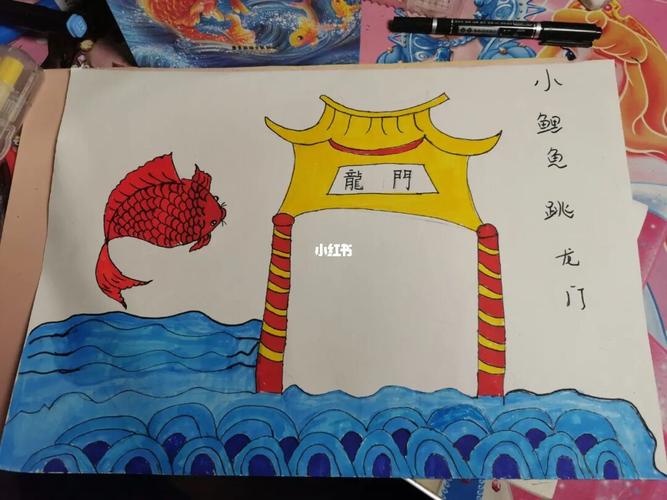 小鲤鱼跳龙门
龍門
小红书